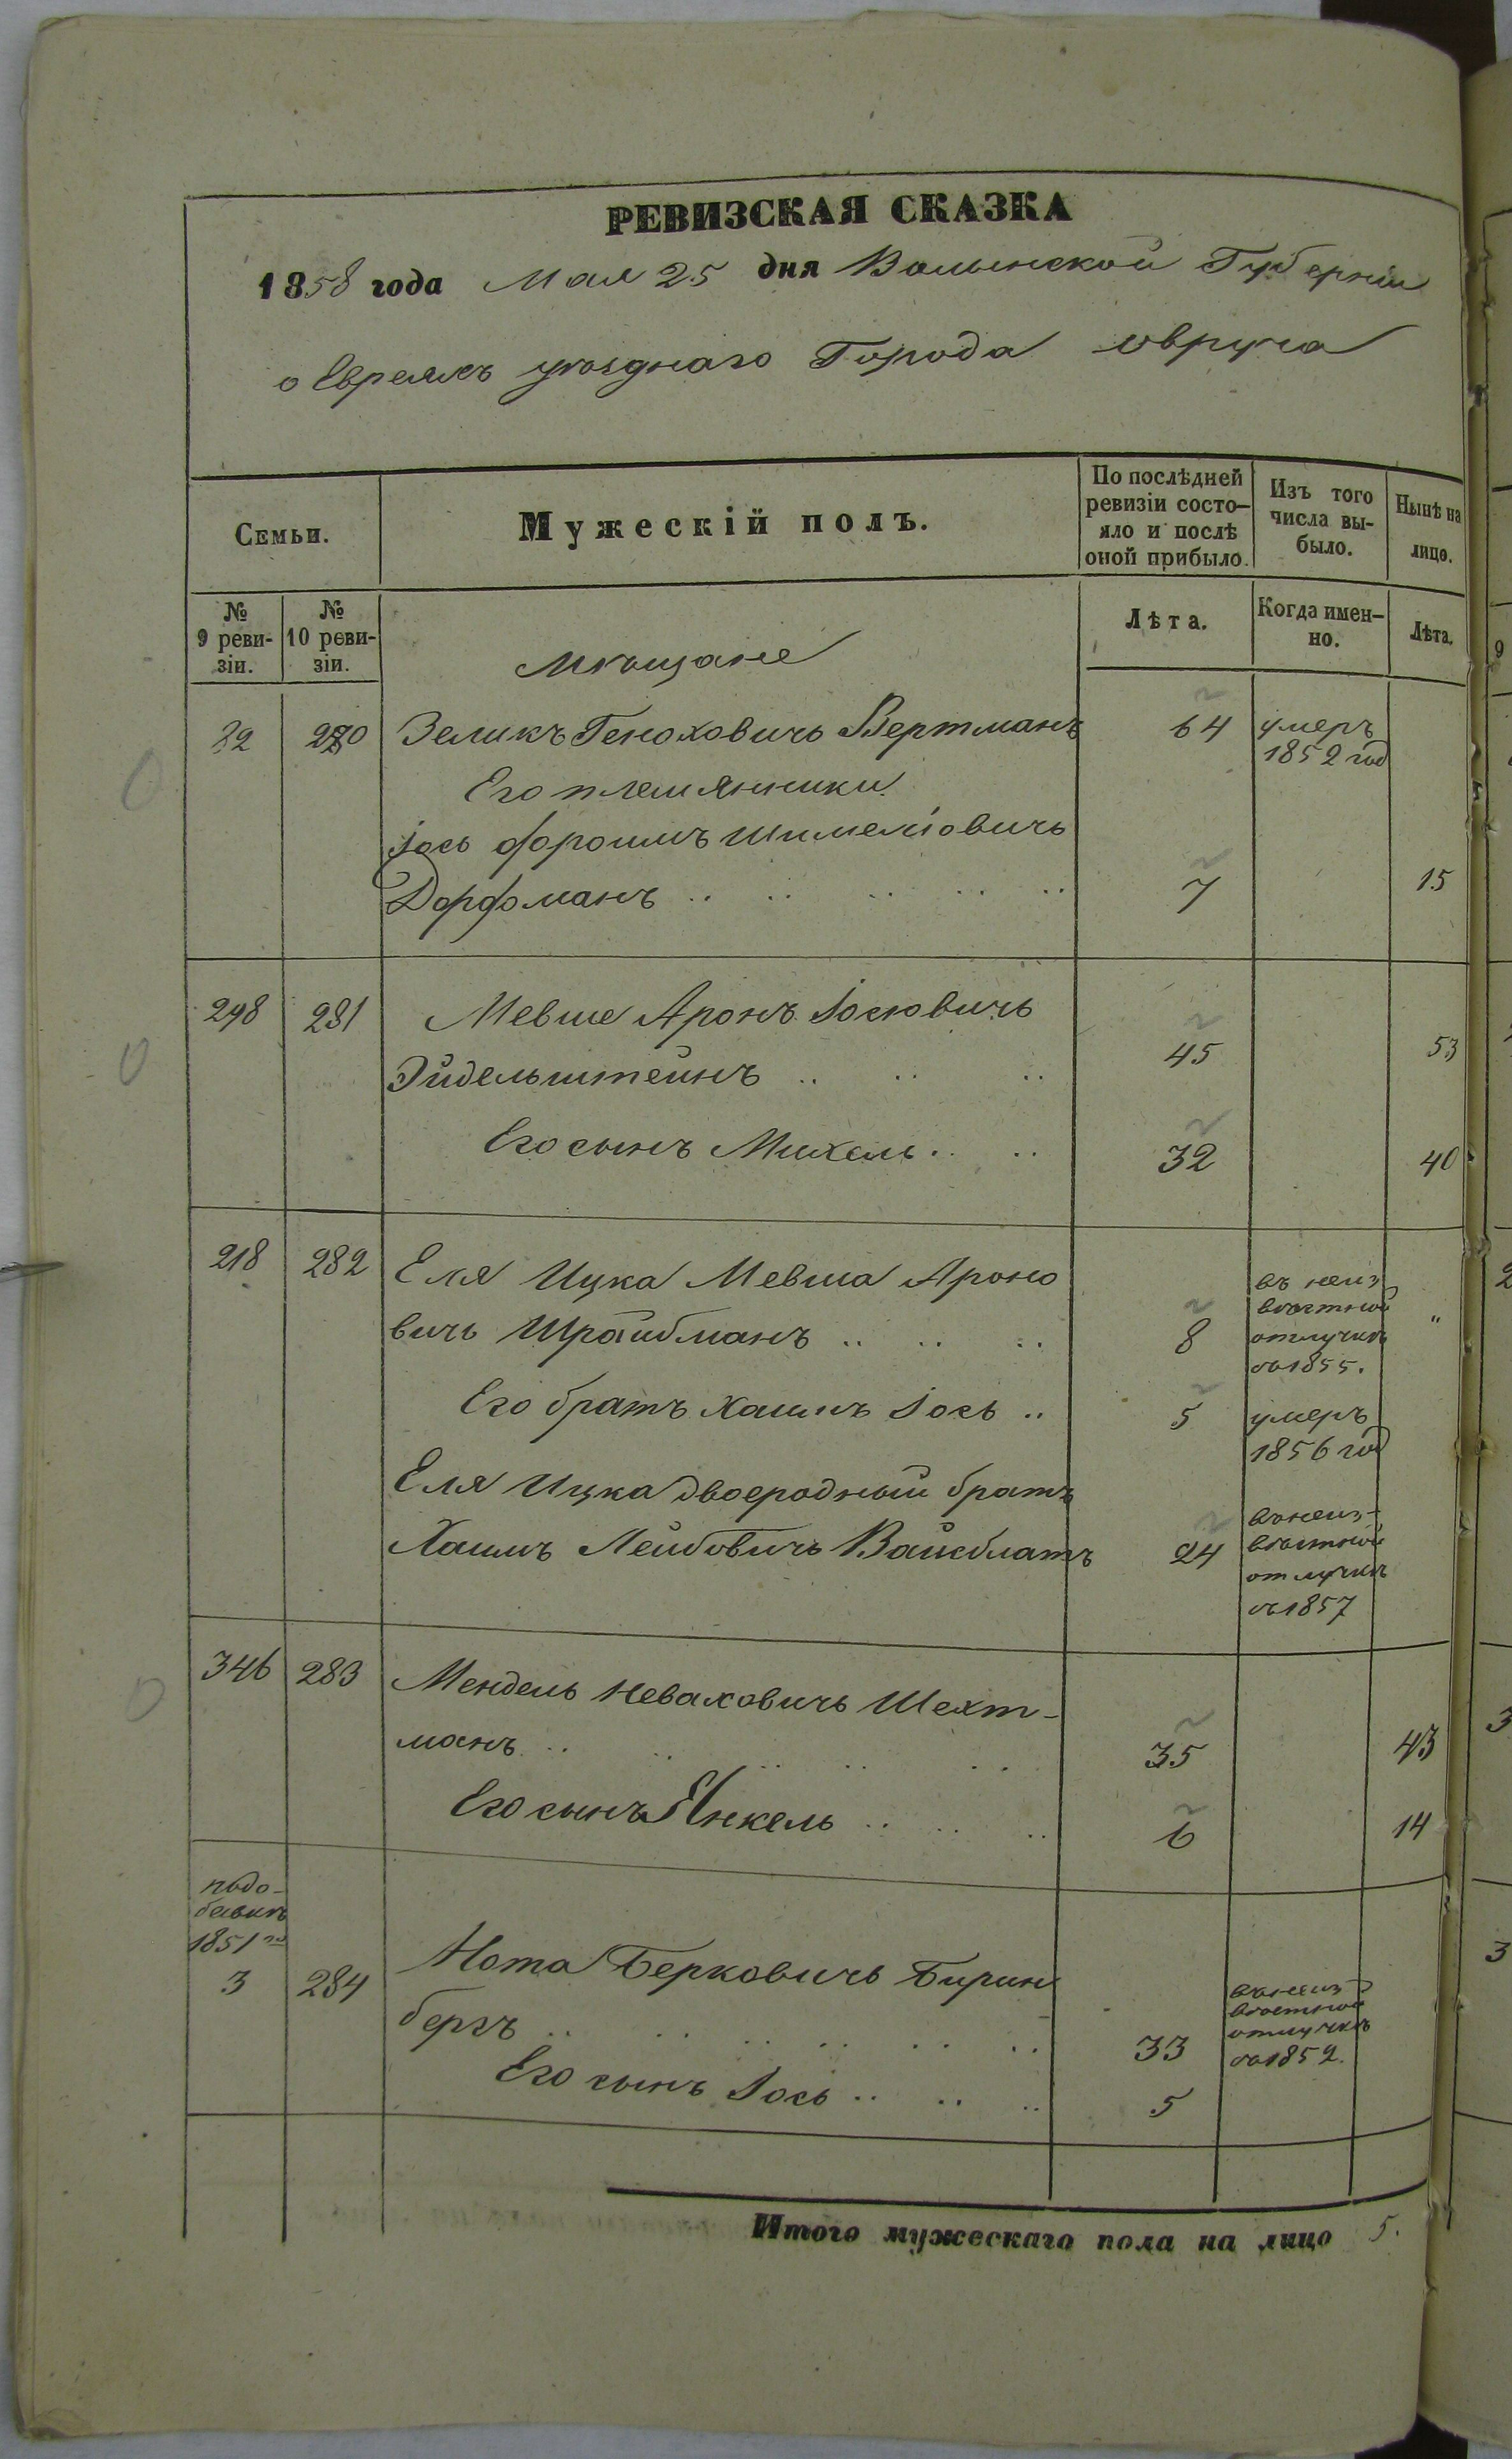 РЕВИЗСКАЯ СКАЗКА
1858 года Мая 25 дня Волынской Губерніи
о Евреяхъ уѣзднаго Города Овруча
Семьи.
Мужескій полъ.
По послѣдней
ревизіи состо-
яло и послѣ
оной прибыло.
Изъ того
числа вы-
было.
Нынѣ на
лицо.
№
9 реви-
зіи.
№
10 реви-
зіи.
Лѣта.
Когда имен-
но.
Лѣта.
Мѣщане
82 280 Зеликъ Геноховичь Вертманъ 64 умеръ
1852 год
Его племянники
Іось Фроимъ Шмеліовичь
Дорфманъ .. .. .. .. .. 7 15
298 281 Мевше Аронъ Іосіовичь
Эйдельштейнъ .. .. .. 45 53
Его сынъ Михель .. .. 32 40
218 282 Еля Ицка Мевша Ароно
вичь Шрайбманъ .. .. .. 8 въ неиз
вѣстной
отлучкѣ
съ 1855. "
Его братъ Хаимъ Іось .. 5 умеръ
1856 год
Еля Ицка двоеродный братъ
Хаимъ Лейбовичь Вайсблатъ 24 въ неиз-
вѣстной
отлучкѣ
съ 1857
346 283 Мендель Неваховичь Шехт-
манъ .. .. .. .. .. 35 43
Его сынъ Янкель .. .. .. 6 14
по до-
бавкѣ
1851 го
3 284 Нота Берковичь Бирин
бергъ .. .. .. .. .. .. 33 въ неиз
вѣстной
отлучкѣ
съ 1852.
Его сынъ Іось .. .. .. 5
Итого мужескаго пола на лицо 5.